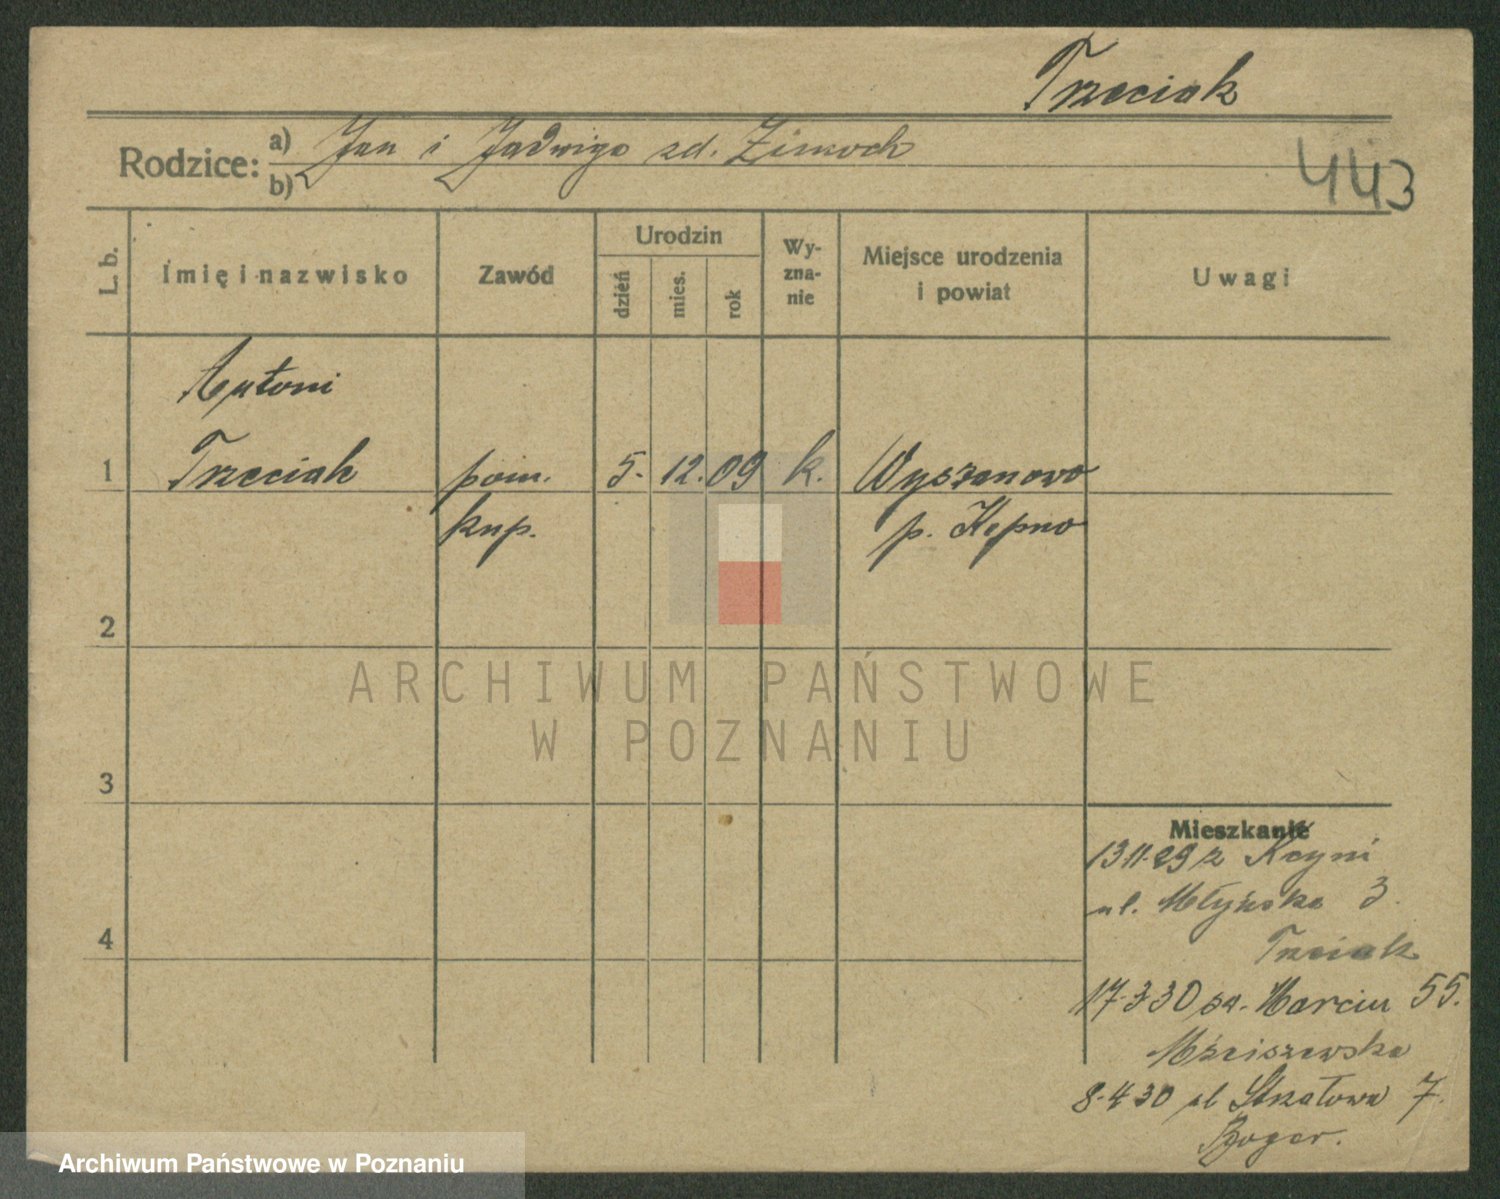 Trzeciak
Rodzice: a) Jan i Jadwiga zd. Zimoch
b)
443
L. b.
Imię i nazwisko
Zawód
Urodzin
dzień
mies.
rok
Wy-
zna-
nie
Miejsce urodzenia
i powiat
Uwagi
Antoni
1 Trzeciak pom. 5. 12. 09 k. Wyszanowo
kup. p. Kępno
2
3
4
ARCHIWUM PAŃSTWOWE
W POZNANIU
Mieszkanie
13.11.29 z Kcyni
ul. Młyńska 3.
Trzeciak
17.3.30 św. Marcin 55.
8.4.30 ul Strzałowa 7.
Archiwum Państwowe w Poznaniu